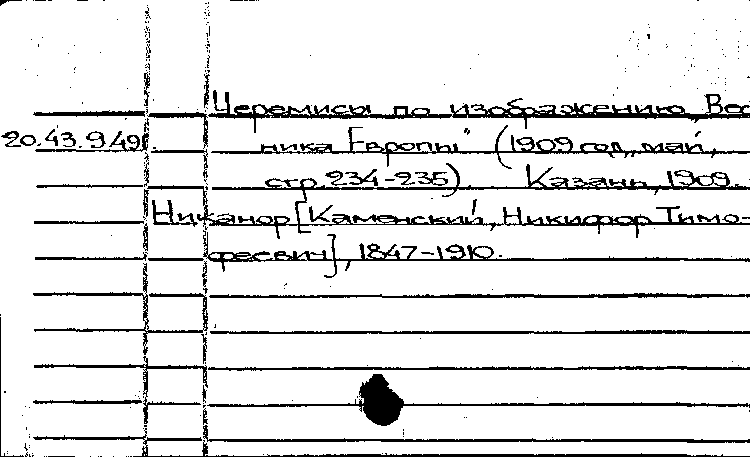 Черемисы по изображению „Вест
20.43.9.491. ника Европы" (1909 год, май,
стр. 234-235). Казань, 1909.
Никанор [Каменский, Никифор Тимо-
феевич], 1847-1910.